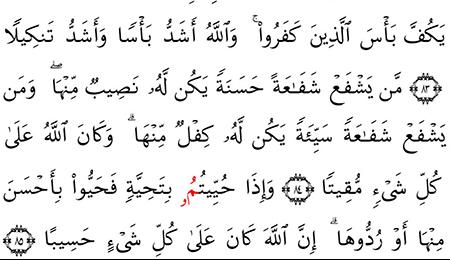 يَكُفَّ بَأْسَ ٱلَّذِينَ كَفَرُوا۟ ۚ وَٱللَّهُ أَشَدُّ بَأْسًا وَأَشَدُّ تَنكِيلًا
﴿٨٣﴾ مَّن يَشْفَعْ شَفَـٰعَةً حَسَنَةً يَكُن لَّهُۥ نَصِيبٌ مِّنْهَا ۖ وَمَن
يَشْفَعْ شَفَـٰعَةً سَيِّئَةً يَكُن لَّهُۥ كِفْلٌ مِّنْهَا ۗ وَكَانَ ٱللَّهُ عَلَىٰ
كُلِّ شَىْءٍ مُّقِيتًا ﴿٨٤﴾ وَإِذَا حُيِّيتُمُۥ بِتَحِيَّةٍ فَحَيُّوا۟ بِأَحْسَنَ
مِنْهَا أَوْ رُدُّوهَا ۗ إِنَّ ٱللَّهَ كَانَ عَلَىٰ كُلِّ شَىْءٍ حَسِيبًا ﴿٨٥﴾